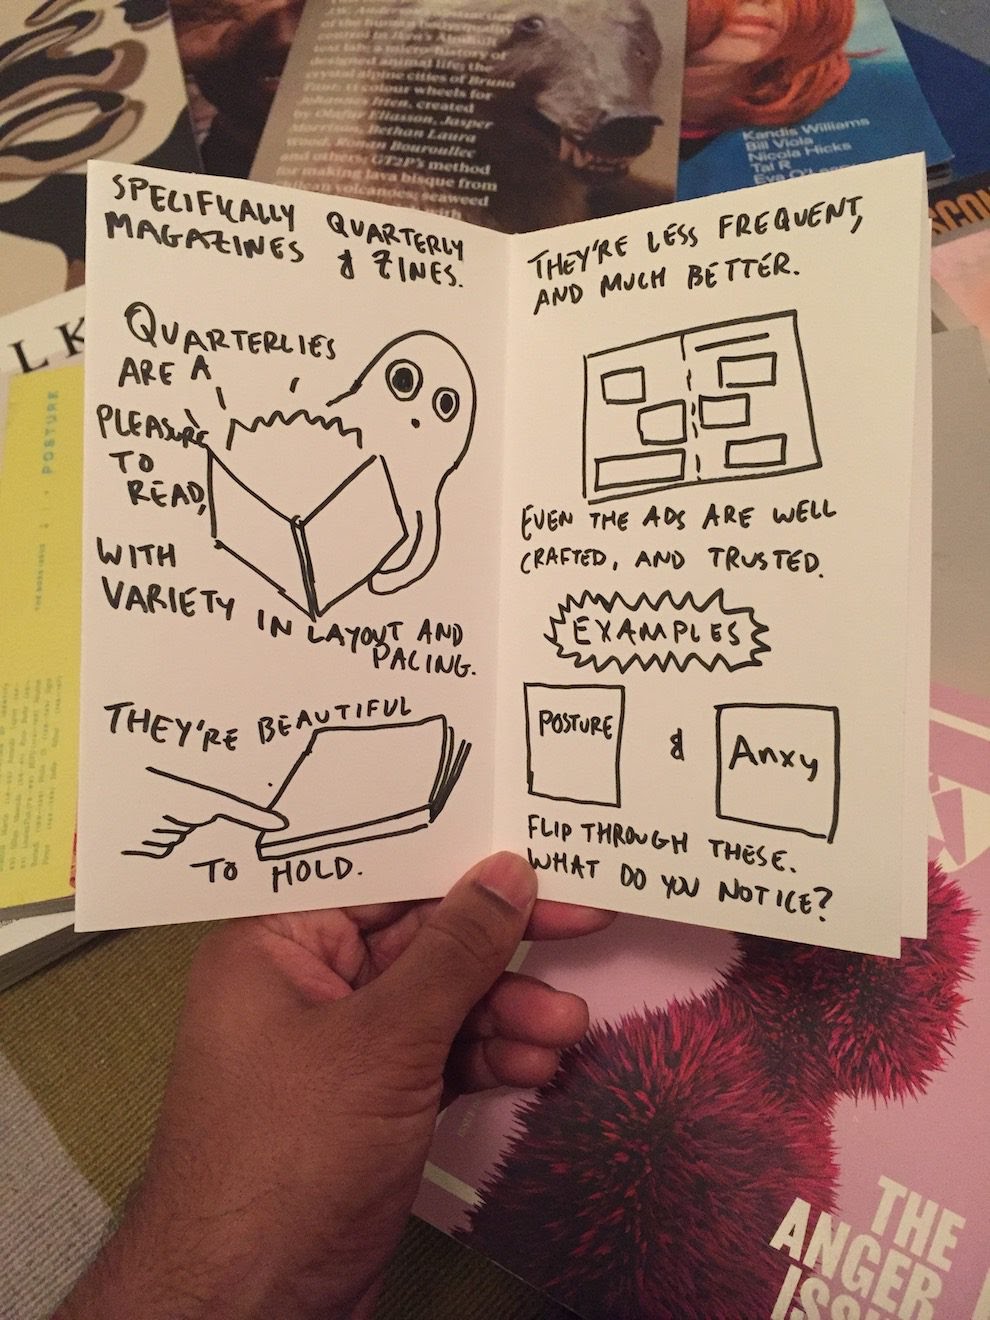 of the human
control in Java's
test lab; a micro-history of
designed animal life; the
crystal alpine cities of Bruno
Taut; 11 colour wheels for
Johannes Itten, created
by Olafur Eliasson, Jasper
Morrison, Bethan Laura
Wood, Ronan Bouroullec
and others; GT2P's method
for making lava bisque from
volcanoes; seaweed
with
Kandis Williams
Bill Viola
Nicola Hicks
Tal R
Eva
L K
POSTURE
SPECIFICALLY QUARTERLY
MAGAZINES & ZINES.
QUARTERLIES
ARE A
PLEASURE
TO
READ,
WITH
VARIETY IN LAYOUT AND
PACING.
THEY'RE BEAUTIFUL
TO HOLD.
THEY'RE LESS FREQUENT,
AND MUCH BETTER.
EVEN THE ADS ARE WELL
CRAFTED, AND TRUSTED.
EXAMPLES
POSTURE & Anxy
FLIP THROUGH THESE.
WHAT DO YOU NOTICE?
THE
ANGER